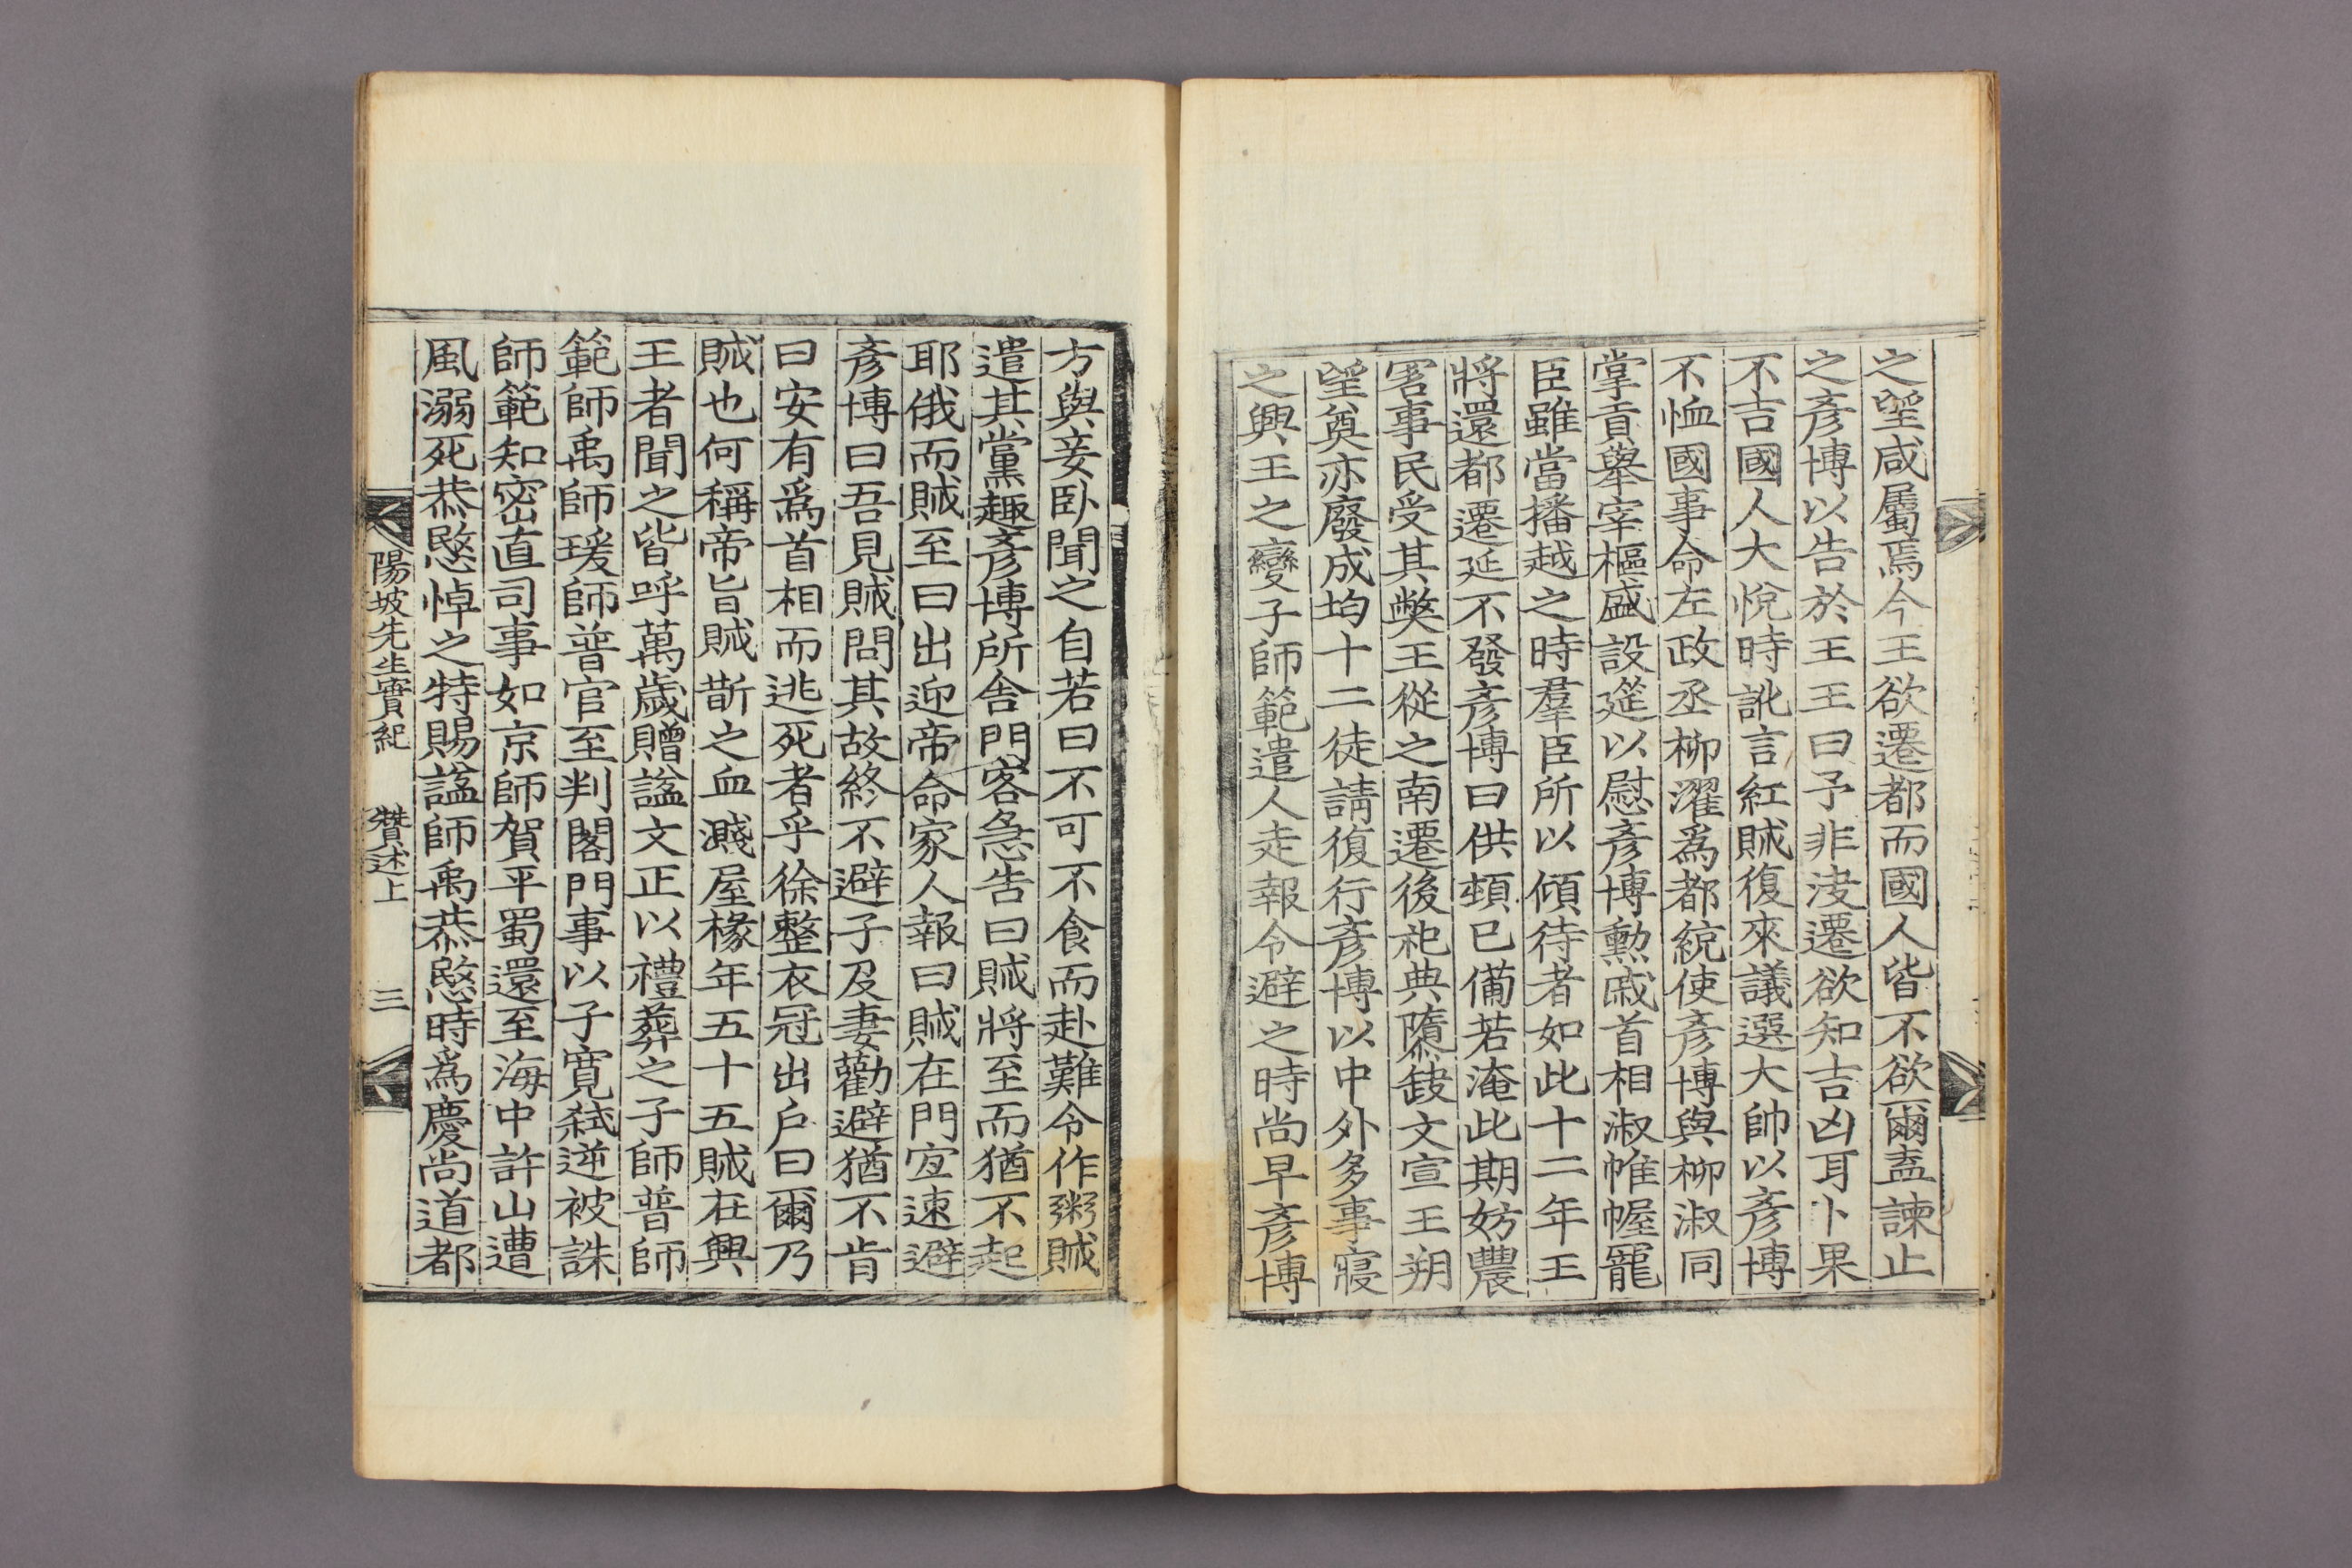 之望咸屬焉今王欲遷都而國人皆不欲爾盍諫止
之彥博以告於王王曰予非決遷欲知吉凶耳卜果
不吉國人大悅時訛言紅賊復來議選大帥以彥博
不恤國事命左政丞柳濯爲都統使彥博與柳淑同
掌貢擧宰樞盛設筵以慰彥博勳戚首相淑帷幄寵
臣雖當播越之時羣臣所以傾待者如此十二年王
將還都遷延不發彥博曰供頓已備若淹此期妨農
害事民受其獘王從之南遷後祀典隳缺文宣王朔
望奠亦廢成均十二徒請復行彥博以中外多事寢
之興王之變子師範遣人走報令避之時尚早彥博
方與妾臥聞之自若曰不可不食而赴難令作粥賊
遣其黨趣彥博所舍門客急告曰賊將至而猶不起
耶俄而賊至曰出迎帝命家人報曰賊在門宜速避
彥博曰吾見賊問其故終不避子及妻勸避猶不肯
曰安有爲首相而逃死者乎徐整衣冠出戶曰爾乃
賊也何稱帝旨賊斮之血濺屋椽年五十五賊在興
王者聞之皆呼萬歲贈諡文正以禮葬之子師普師
範師禹師瑗師普官至判閤門事以子寬弑逆被誅
師範知密直司事如京師賀平蜀還至海中許山遭
風溺死恭愍悼之特賜諡師禹恭愍時爲慶尚道都
陽坡先生實紀 贊述上 三